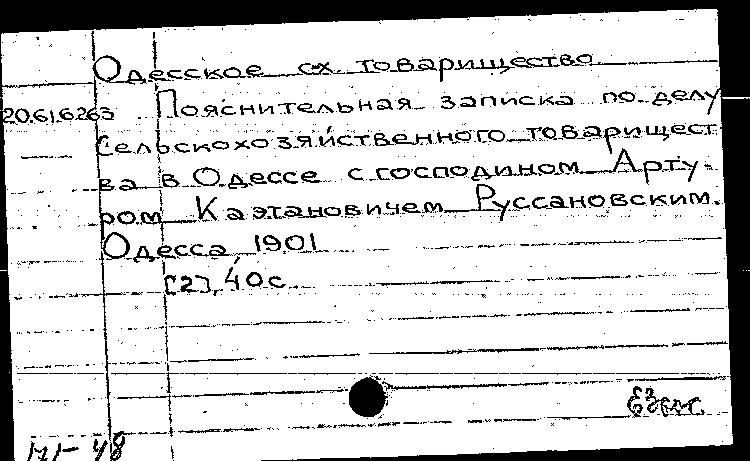 Одесское с-х. товарищество
20.61.6263 Пояснительная записка по делу
Сельскохозяйственного товарищест-
ва в Одессе с господином Арту-
ром Каэтановичем Руссановским.
Одесса, 1901
[2], 40 с.
48